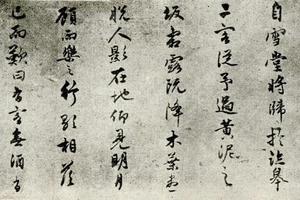 自雪堂將歸於臨皋
二客從予過黃泥之
坂霜露既降木葉盡
脫人影在地仰見明月
顧而樂之行歌相答
已而歎曰有客無酒有